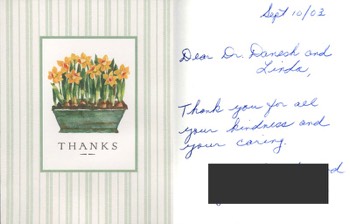 THANKS
Sept 10/03
Dear Dr. Danesh and
Linda,
Thank you for all
your kindness and
your caring.